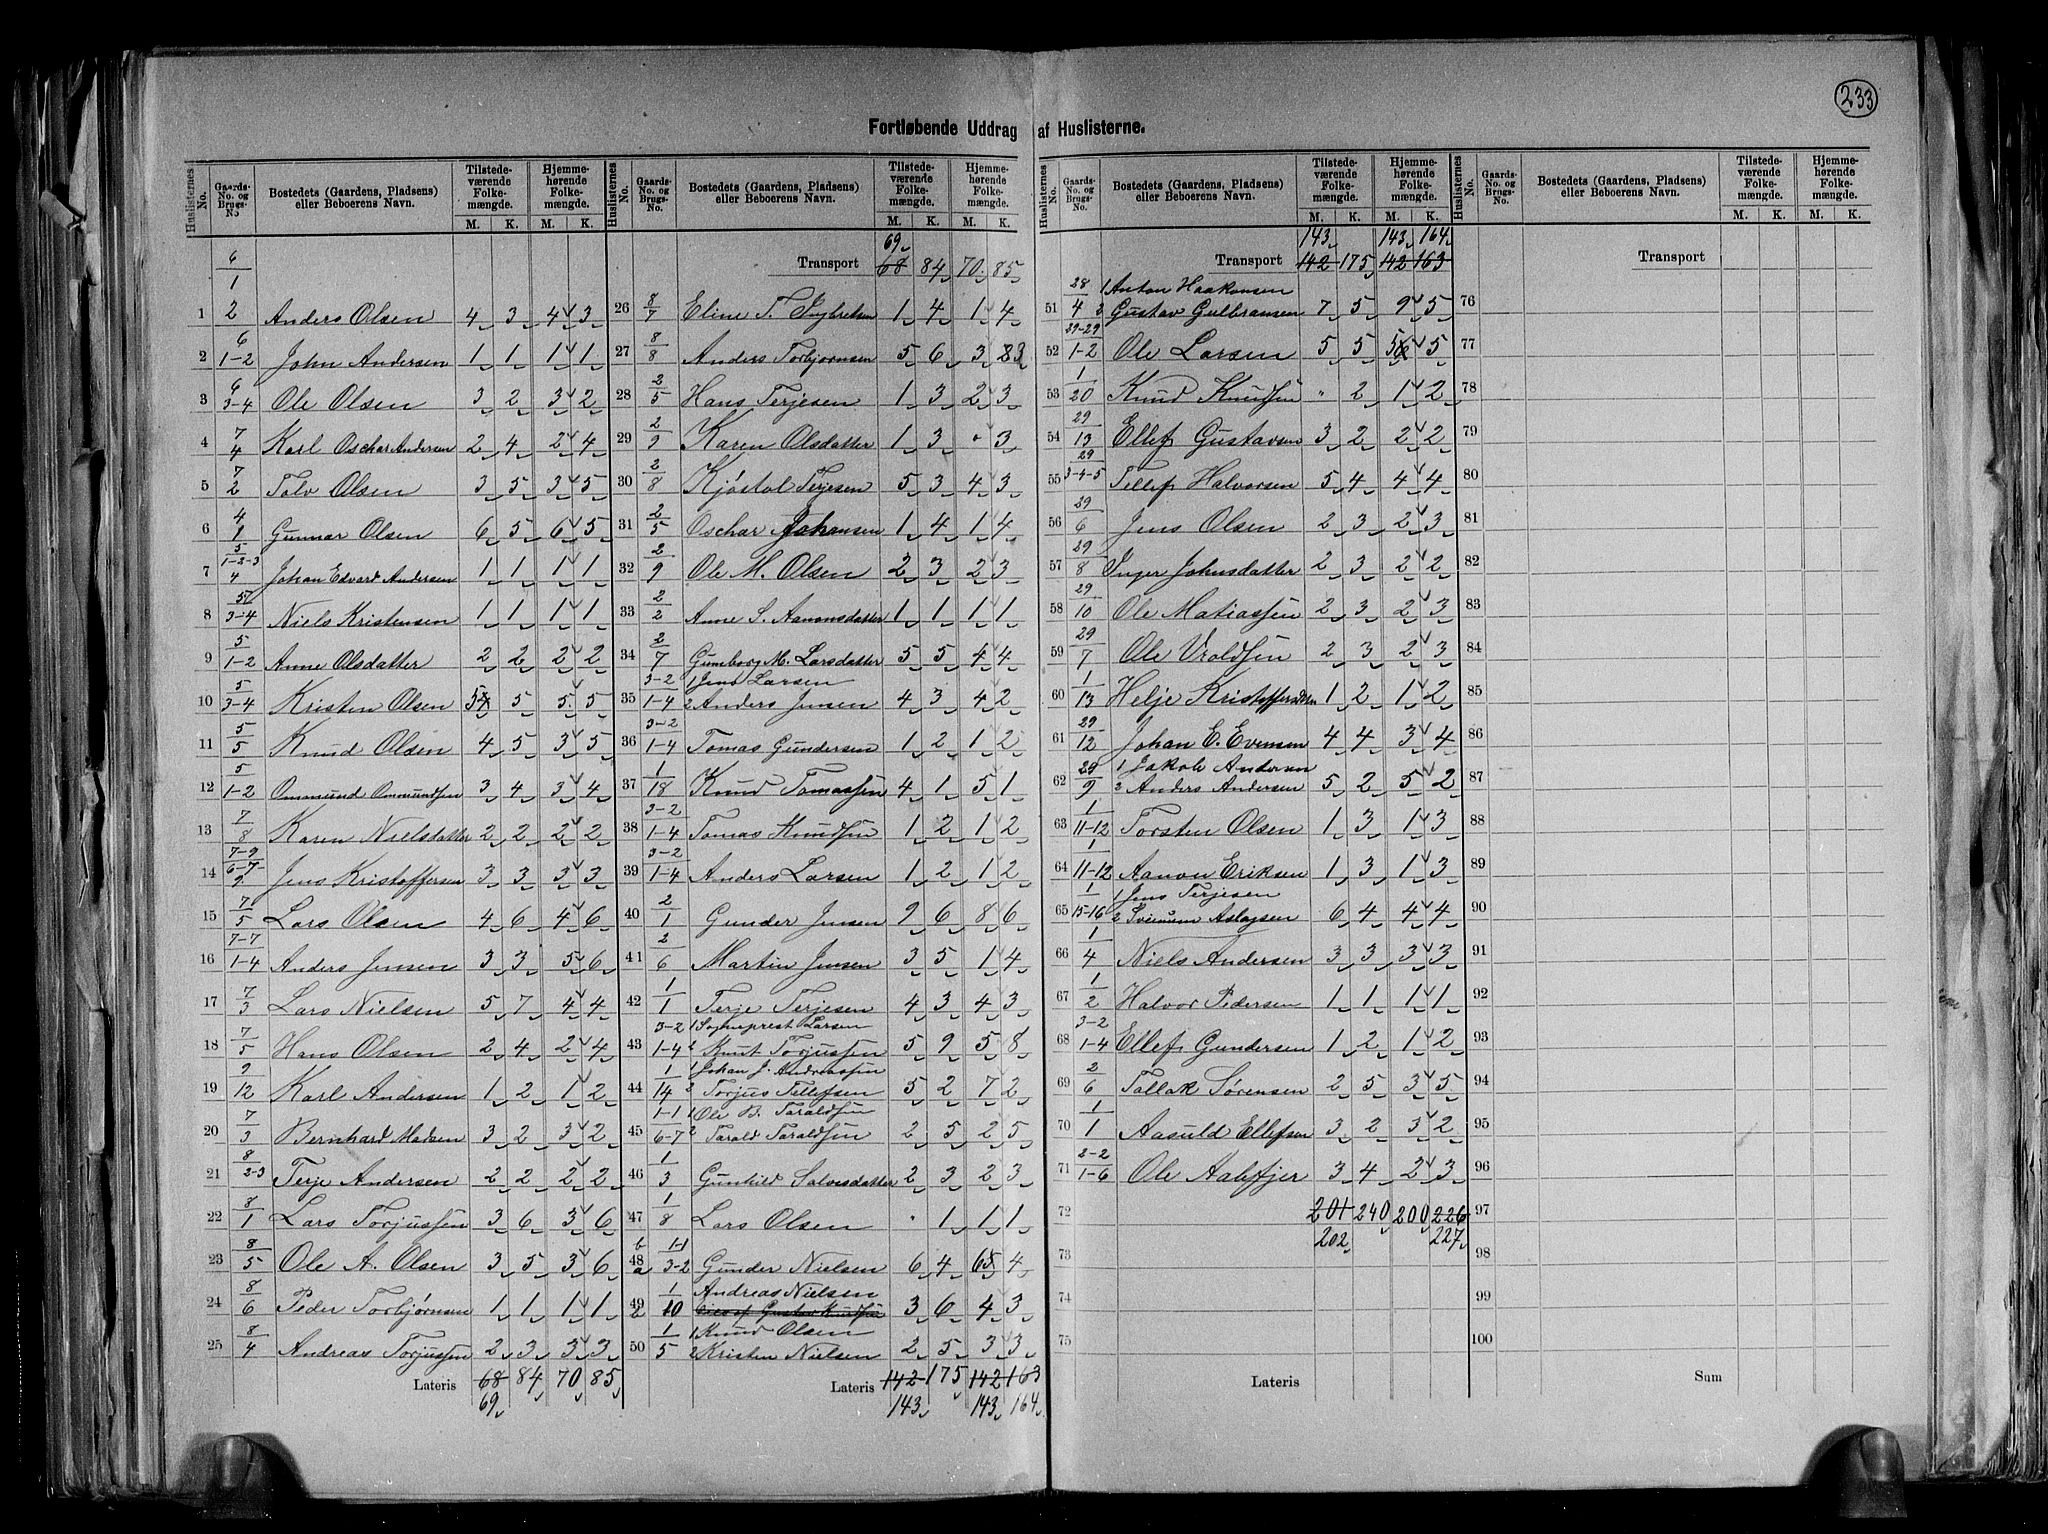 233
Fortløbende Uddrag af Huslisterne.
Huslisternes No. Gaards-No. og Brugs-No Bostedets (Gaardens, Pladsens) eller Beboerens Navn. Tilstedeværende Folkemængde. M. K. Hjemmehørende Folkemængde. M. K.
6/1
1 2 Anders Olsen 4 3 4 3
2 6/1-2 John Andersen 1 1 1 1
3 6/3-4 Ole Olsen 3 2 3 2
4 7/4 Karl Oschar Andersen 2 4 2 4
5 7/2 Tolv Olsen 3 5 3 5
6 4/1 Gunnar Olsen 6 5 6 5
7 5/1-2-3 4 Johan Edvard Andersen 1 1 1 1
8 5/3-4 Niels Kristensen 1 1 1 1
9 5/1-2 Anne Olsdatter 2 2 2 2
10 5/3-4 Kristen Olsen 5 5 5 5
11 5/5 Knud Olsen 4 5 3 5
12 5/1-2 Ommund Ommundsen 3 4 3 4
13 7/8 Karen Nielsdatter 2 2 2 2
14 7-9/6-7-9 Jens Kristoffersen 3 3 3 3
15 7/5 Lars Olsen 4 6 4 6
16 7-7/1-4 Anders Jensen 3 3 5 6
17 7/3 Lars Nielsen 5 7 4 4
18 7/5 Hans Olsen 2 4 2 4
19 9/12 Karl Andersen 1 2 1 2
20 7/3 Bernhard Madsen 3 2 3 2
21 8/2-3 Terje Andersen 2 2 2 2
22 8/1 Lars Torjussen 3 6 3 6
23 8/5 Ole A. Olsen 3 5 3 6
24 8/6 Peder Torbjørnsen 1 1 1 1
25 8/4 Andreas Torjussen 2 3 3 3
Lateris 68 84 70 85
69
Huslisternes No. Gaards-No. og Brugs-No. Bostedets (Gaardens, Pladsens) eller Beboerens Navn. Tilstedeværende Folkemængde. M. K. Hjemmehørende Folkemængde. M. K.
69
Transport 68 84 70 85
26 8/7 Eline T. Ingbretsen 1 4 1 4
27 8/8 Anders Torbjornsen 5 6 3 8 3
28 2/5 Hans Terjesen 1 3 2 3
29 2/9 Karen Olsdatter 1 3 " 3
30 2/8 Kjøstol Terjesen 5 3 4 3
31 2/5 Oschar Johansen 1 4 1 4
32 2/9 Ole M. Olsen 2 3 2 3
33 2/2 Anne S. Aanonsdatter 1 1 1 1
34 2/7 Gumborg M. Larsdatter 5 5 4 4
3-2 1 Jens Larsen
35 1-4 2 Anders Jensen 4 3 4 2
36 3-2/1-4 Tomas Gundersen 1 2 1 2
37 1/18 Knud Tomassen 4 1 5 1
38 3-2/1-4 Tomas Knudsen 1 2 1 2
39 3-2/1-4 Anders Larsen 1 2 1 2
40 2/1 Gunder Jensen 9 6 8 6
41 2/6 Martin Jensen 3 5 1 4
42 1/1 Terje Terjesen 4 3 4 3
3-2 1 Sogneprest Larsen
43 1-4 2 Knut Torjussen 5 9 5 8
1 1 Johan J. Andreassen
44 14 2 Torjus Tellefsen 5 2 7 2
1-1 1 Ole B. Taraldsen
45 6-7 2 Tarald Taraldsen 2 5 2 5
46 1/3 Gunhild Salvesdatter 2 3 2 3
47 1/8 Lars Olsen " 1 1 1
48 b a 1-1/3-2 Gunder Nielsen 6 4 6 5 4
1 Andreas Nielsen
49 2 10 Gustav Knudsen 3 6 4 3
1 1 Knud Olsen
50 5 2 Kristen Nielsen 2 5 3 3
Lateris 142 175 142 163
143 143 164
Huslisternes No. Gaards-No. og Brugs-No. Bostedets (Gaardens, Pladsens) eller Beboerens Navn. Tilstedeværende Folkemængde. M. K. Hjemmehørende Folkemængde. M. K.
143 143 164
Transport 142 175 142 163
28 1 Anton Haakonsen
51 4 2 Gustav Gulbransen 7 5 9 5
52 29-29/1-2 Ole Larsen 5 5 5 5
53 1/20 Knud Knudsen " 2 1 2
54 29/13 Ellef Gustavsen 3 2 2 2
55 29/3-4-5 Tellef Halvorsen 5 4 4 4
56 29/6 Jens Olsen 2 3 2 3
57 29/8 Inger Johnsdatter 2 3 2 2
58 29/10 Ole Matiassen 2 3 2 3
59 29/7 Ole Vroldsen 2 3 2 3
60 1/13 Helje Kristoffersdtr 1 2 1 2
61 29/12 Johan E. Evensen 4 4 3 4
29 1 Jakob Andersen
62 9 2 Anders Andersen 5 2 5 2
63 1/11-12 Torsten Olsen 1 3 1 3
64 1/11-12 Aanon Eriksen 1 3 1 3
1 1 Jens Terjesen
65 15-16 2 Sveinum Aslagsen 6 4 4 4
66 1/4 Niels Andersen 3 3 3 3
67 1/2 Halvor Pedersen 1 1 1 1
68 3-2/1-4 Ellef Gundersen 1 2 1 2
69 2/6 Tallak Sørensen 2 5 3 5
70 1/1 Aasuld Ellefsen 3 2 3 2
71 2-2/1-6 Ole Aabefjer 3 4 2 3
72 201 240 200 226
202 227
73
74
75
Lateris
Huslisternes No. Gaards-No. og Brugs-No. Bostedets (Gaardens, Pladsens) eller Beboerens Navn. Tilstedeværende Folkemængde. M. K. Hjemmehørende Folkemængde. M. K.
Transport
76
77
78
79
80
81
82
83
84
85
86
87
88
89
90
91
92
93
94
95
96
97
98
99
100
Sum